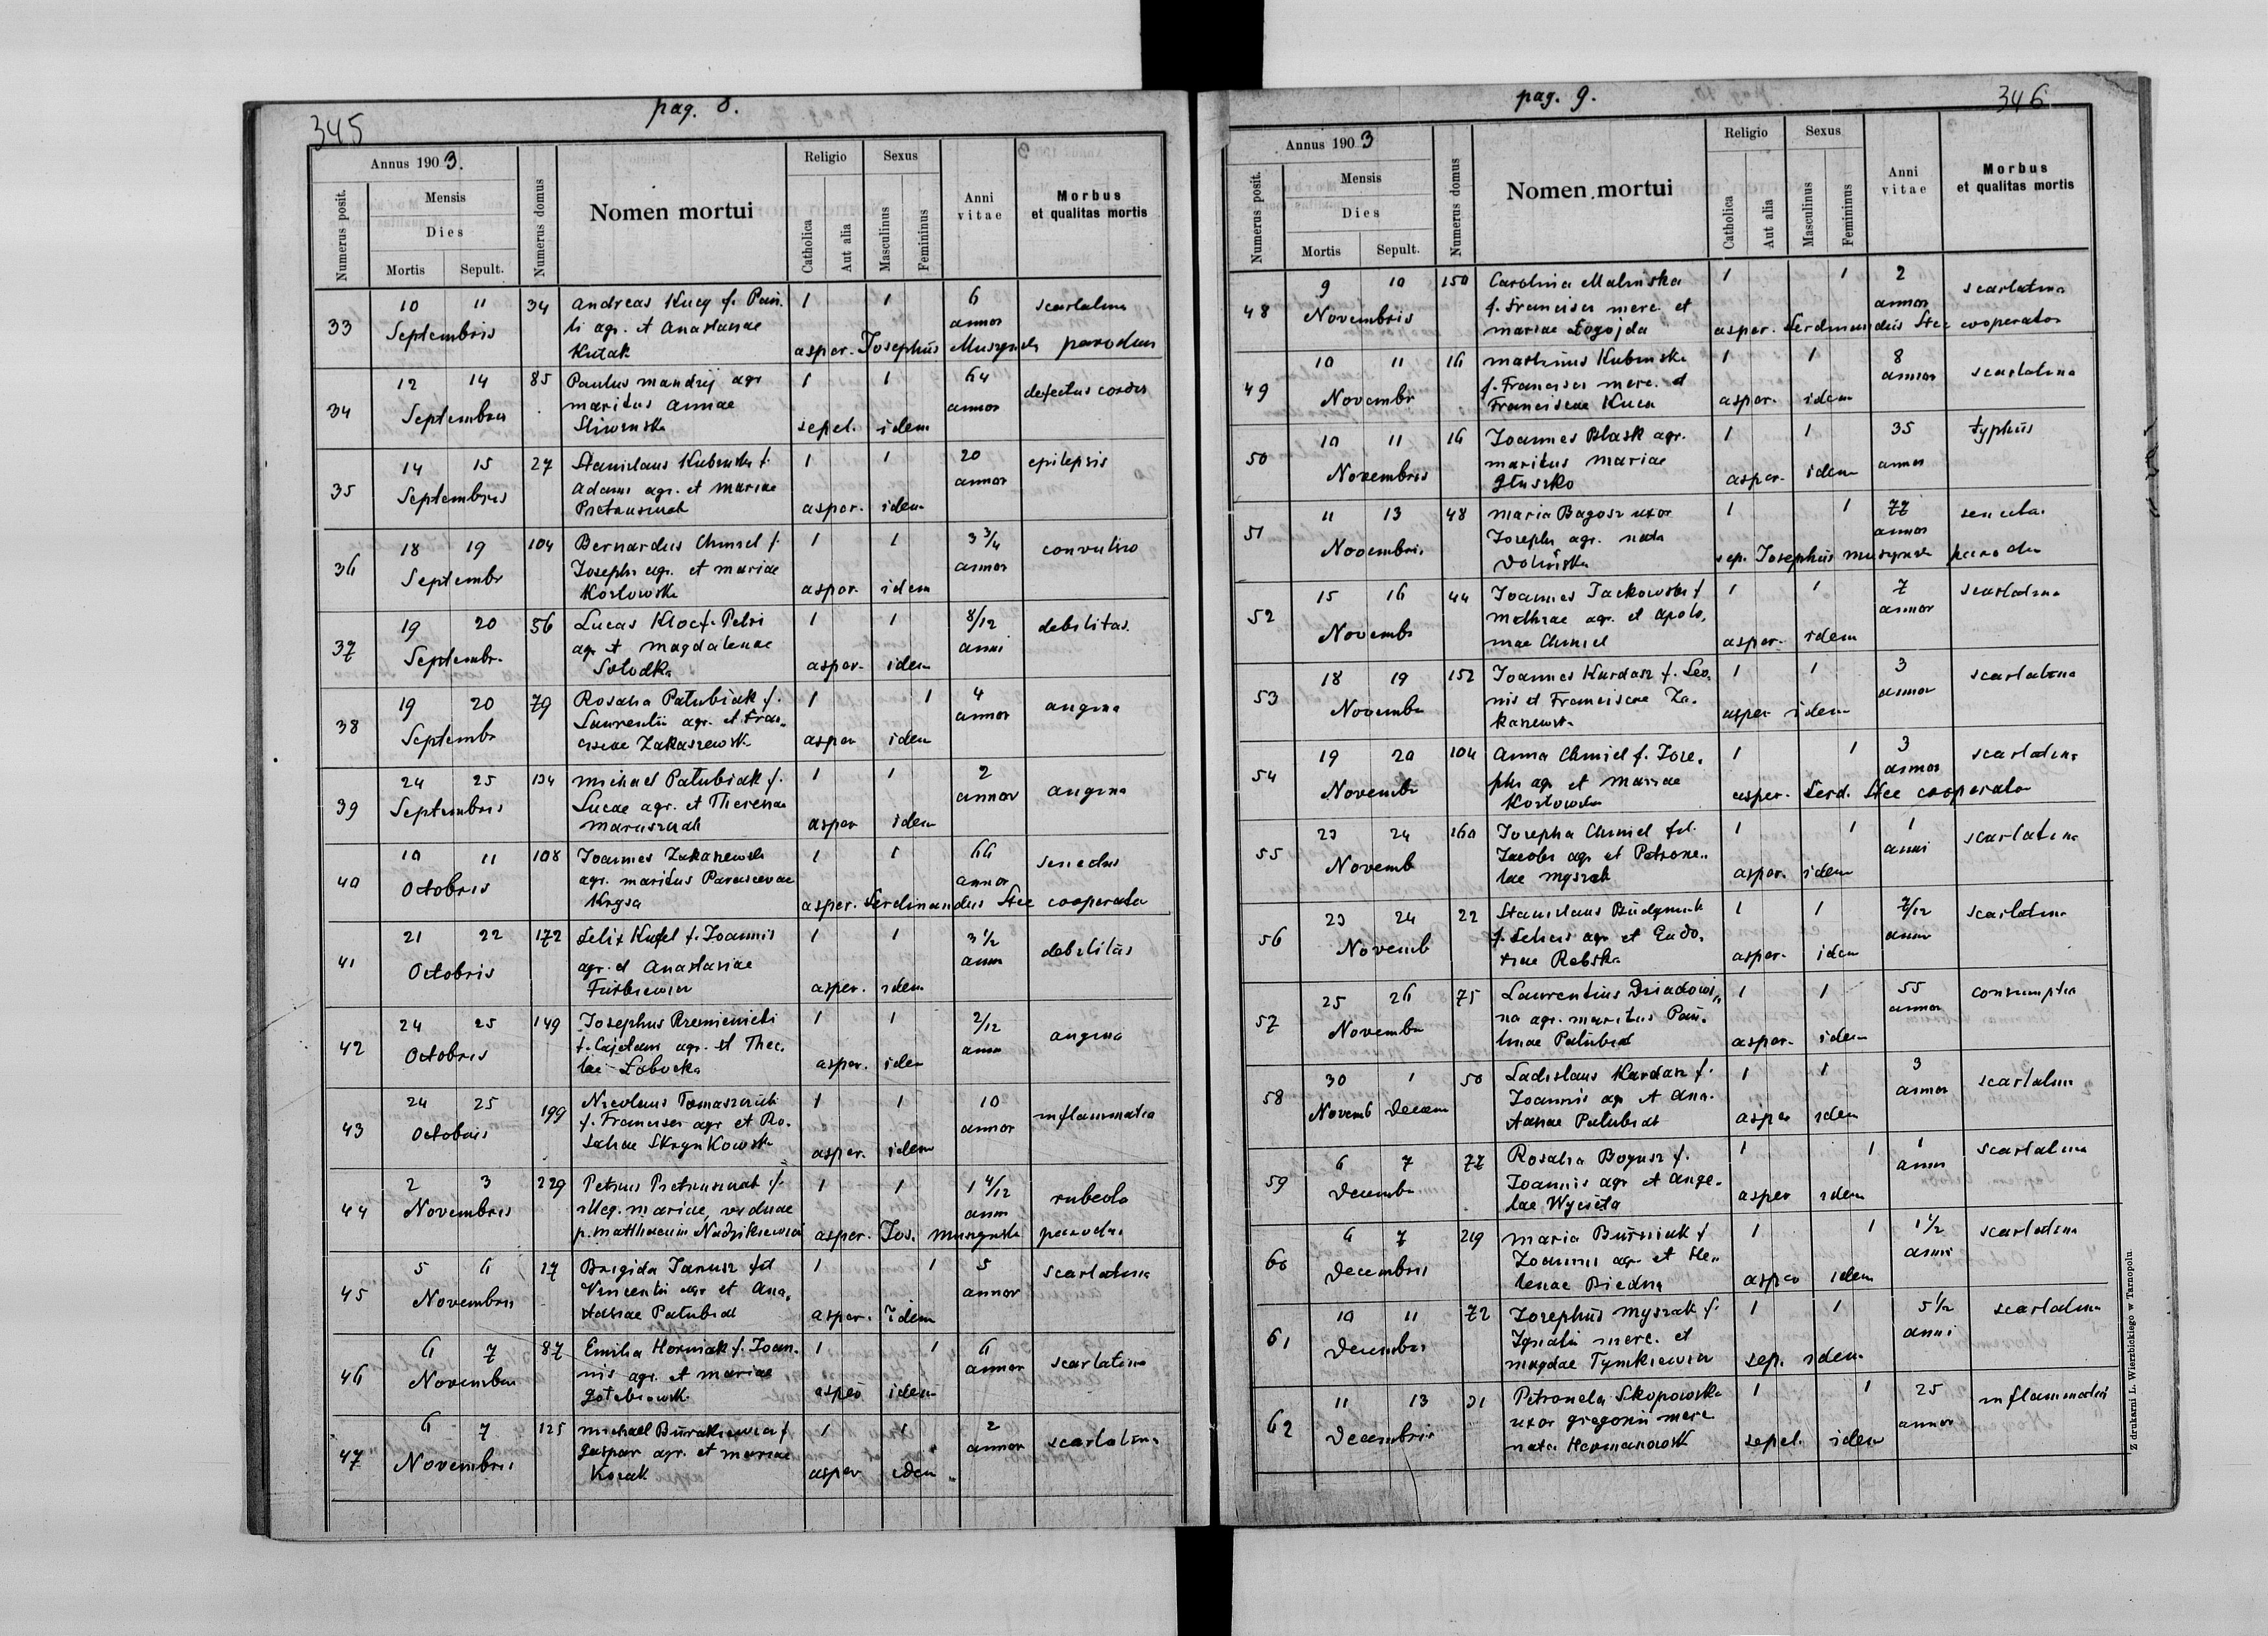 345
pag. 8.
Annus 1903.
Numerus posit.
Mensis
Dies
Mortis Sepult.
Numerus domus
Nomen mortui
Religio
Catholica
Aut alia
Sexus
Masculinus
Femininus
Anni vitae
Morbus
et qualitas mortis
33 10 11 34 Andreas Kucy f. Pau. 1 1 6 scarlatina
Septembris li agr. et Anastasiae annor
Kutak asper. Josephus parochus
34 12 14 85 Paulus Mandzij agr 1 1 64 defectus cordis
Septembris maritus Annae annor
sepel. idem
35 14 15 27 Stanislaus f. 1 1 20 epilepsis
Septembris Adami agr. et Mariae annor
asper. idem
36 18 19 104 Bernardus Chmiel f. 1 1 3 3/4
Septembr Josephi agr. et Mariae annor
Kozlowska asper. idem
37 19 20 56 Lucas Kloc f. Petri 1 1 8/12 debilitas
Septembr. agr. et Magdalenae anni
Solodka asper. idem
38 19 20 79 Rosalia Patubiak f. 1 1 4 angina
Septembr Laurentii agr. et Fran„ annor
ciscae Zakaszewsk asper idem
39 24 25 134 Michael Patubiak f. 1 1 2 angina
Septembris Lucae agr. et Theresiae annor
asper idem
40 10 11 108 Joannes 1 1 66
Octobris agr. maritus Parascevae annor
Krysa asper. Ferdinandus Stec cooperator
41 21 22 172 Felix Kufel f. Joannis 1 1 3 1/2 debilitas
Octobris agr. et Anastasiae anni
asper. idem
42 24 25 149 Josephus 1 1 2/12 angina
Octobris f. Cajetani agr. et Thec. anni
lae Łobocka asper. idem
43 24 25 199 Nicolaus 1 1 10 inflammatio
Octobris f. Francisci agr et Ro. annor
saliae Skrynkowsk asper. idem
44 2 3 229 Petrus f. 1 1 1 4/12 rubeola
Novembris illeg. Mariae, viduae anni
p. Matthaeum asper. Jos. parochus
45 5 6 17 Brigida Janusz fil 1 1 5 scarlatina
Novembris Vincentii agr et Ana. annor
stasiae Patubiak asper. idem
46 6 7 87 Emilia Horniak f. Joan. 1 1 6 scarlatina
Novembris nis agr. et Mariae annor
asper idem
47 6 7 125 Michael f. 1 1 2 scarlatina
Novembris Gaspar agr. et Mariae annor
Kozak asper idem
pag. 9.
346
Annus 1903
Numerus posit.
Mensis
Dies
Mortis Sepult.
Numerus domus
Nomen mortui
Religio
Catholica
Aut alia
Sexus
Masculinus
Femininus
Anni vitae
Morbus
et qualitas mortis
48 9 10 150 Carolina Malinska 1 1 2 scarlatina
Novembris f. Francisci merc. et annor
Mariae Łogojda asper. Ferdinandus Stec cooperator
49 10 11 16 Martinus Kubinski 1 1 8 scarlatina
Novembr f. Francisci merc. et annor
Franciscae Kuca asper. idem
50 10 11 16 Joannes Błask agr. 1 1 35 typhus
Novembris maritus Mariae annor
Głuszko asper. idem
51 11 13 48 Maria Bagosz uxor 1 1 77
Novembris Josephi agr. nata annor
Dolińska sep. Josephus
52 15 16 44 Joannes Jackowski f 1 1 7 scarlatina
Novembr Mathiae agr. et Apolo. annor
niae Chmiel asper. idem
53 18 19 152 Joannes Kardasz f. Leo. 1 1 3 scarlatina
Novembr nis et Franciscae Za. annor
kaszewsk asper idem
54 19 20 104 Anna Chmiel f. Jose. 1 1 3 scarlatina
Novembr phi agr et Mariae annor
Kozlowska asper. Ferd. Stec cooperator
55 23 24 160 Josepha Chmiel fil. 1 1 1 scarlatina
Novemb Jacobi agr et Petrone„ anni
lae Myszak asper. idem
56 23 24 22 Stanislaus 1 1 7/12 scarlatina
Novemb f. Felicis agr et Eudo. anni
xiae Rebska asper. idem
57 25 26 75 Laurentius Dziadowi„ 1 1 55 consumptio
Novembr na agr. maritus Pau. annor
linae Patubiak asper. idem
58 30 1 50 Ladislaus Kardasz f. 1 1 3 scarlatina
Novemb Decem Joannis agr et Ana. annor
stasiae Patubiak asper idem
59 6 7 77 Rosalia Bogusz f. 1 1 1 scarlatina
Decembr Joannis agr et Ange. anni
lae Wycieta asper idem
60 6 7 219 Maria f. 1 1 1 1/2 scarlatina
Decembris Joannis agr. et He„ anni
lenae Biedna asper idem
61 10 11 72 Josephus Myszak f. 1 1 5 1/2 scarlatina
Decembris Ignatii merc. et anni
Magdae Tymkiewicz sep. idem
62 11 13 31 Petronela Skopowska 1 1 25 inflammatio
Decembris uxor Gregorii merc annor
nata Hermanowsk sepel. idem
Z drukarni L. Wierzbickiego w Tarnopolu